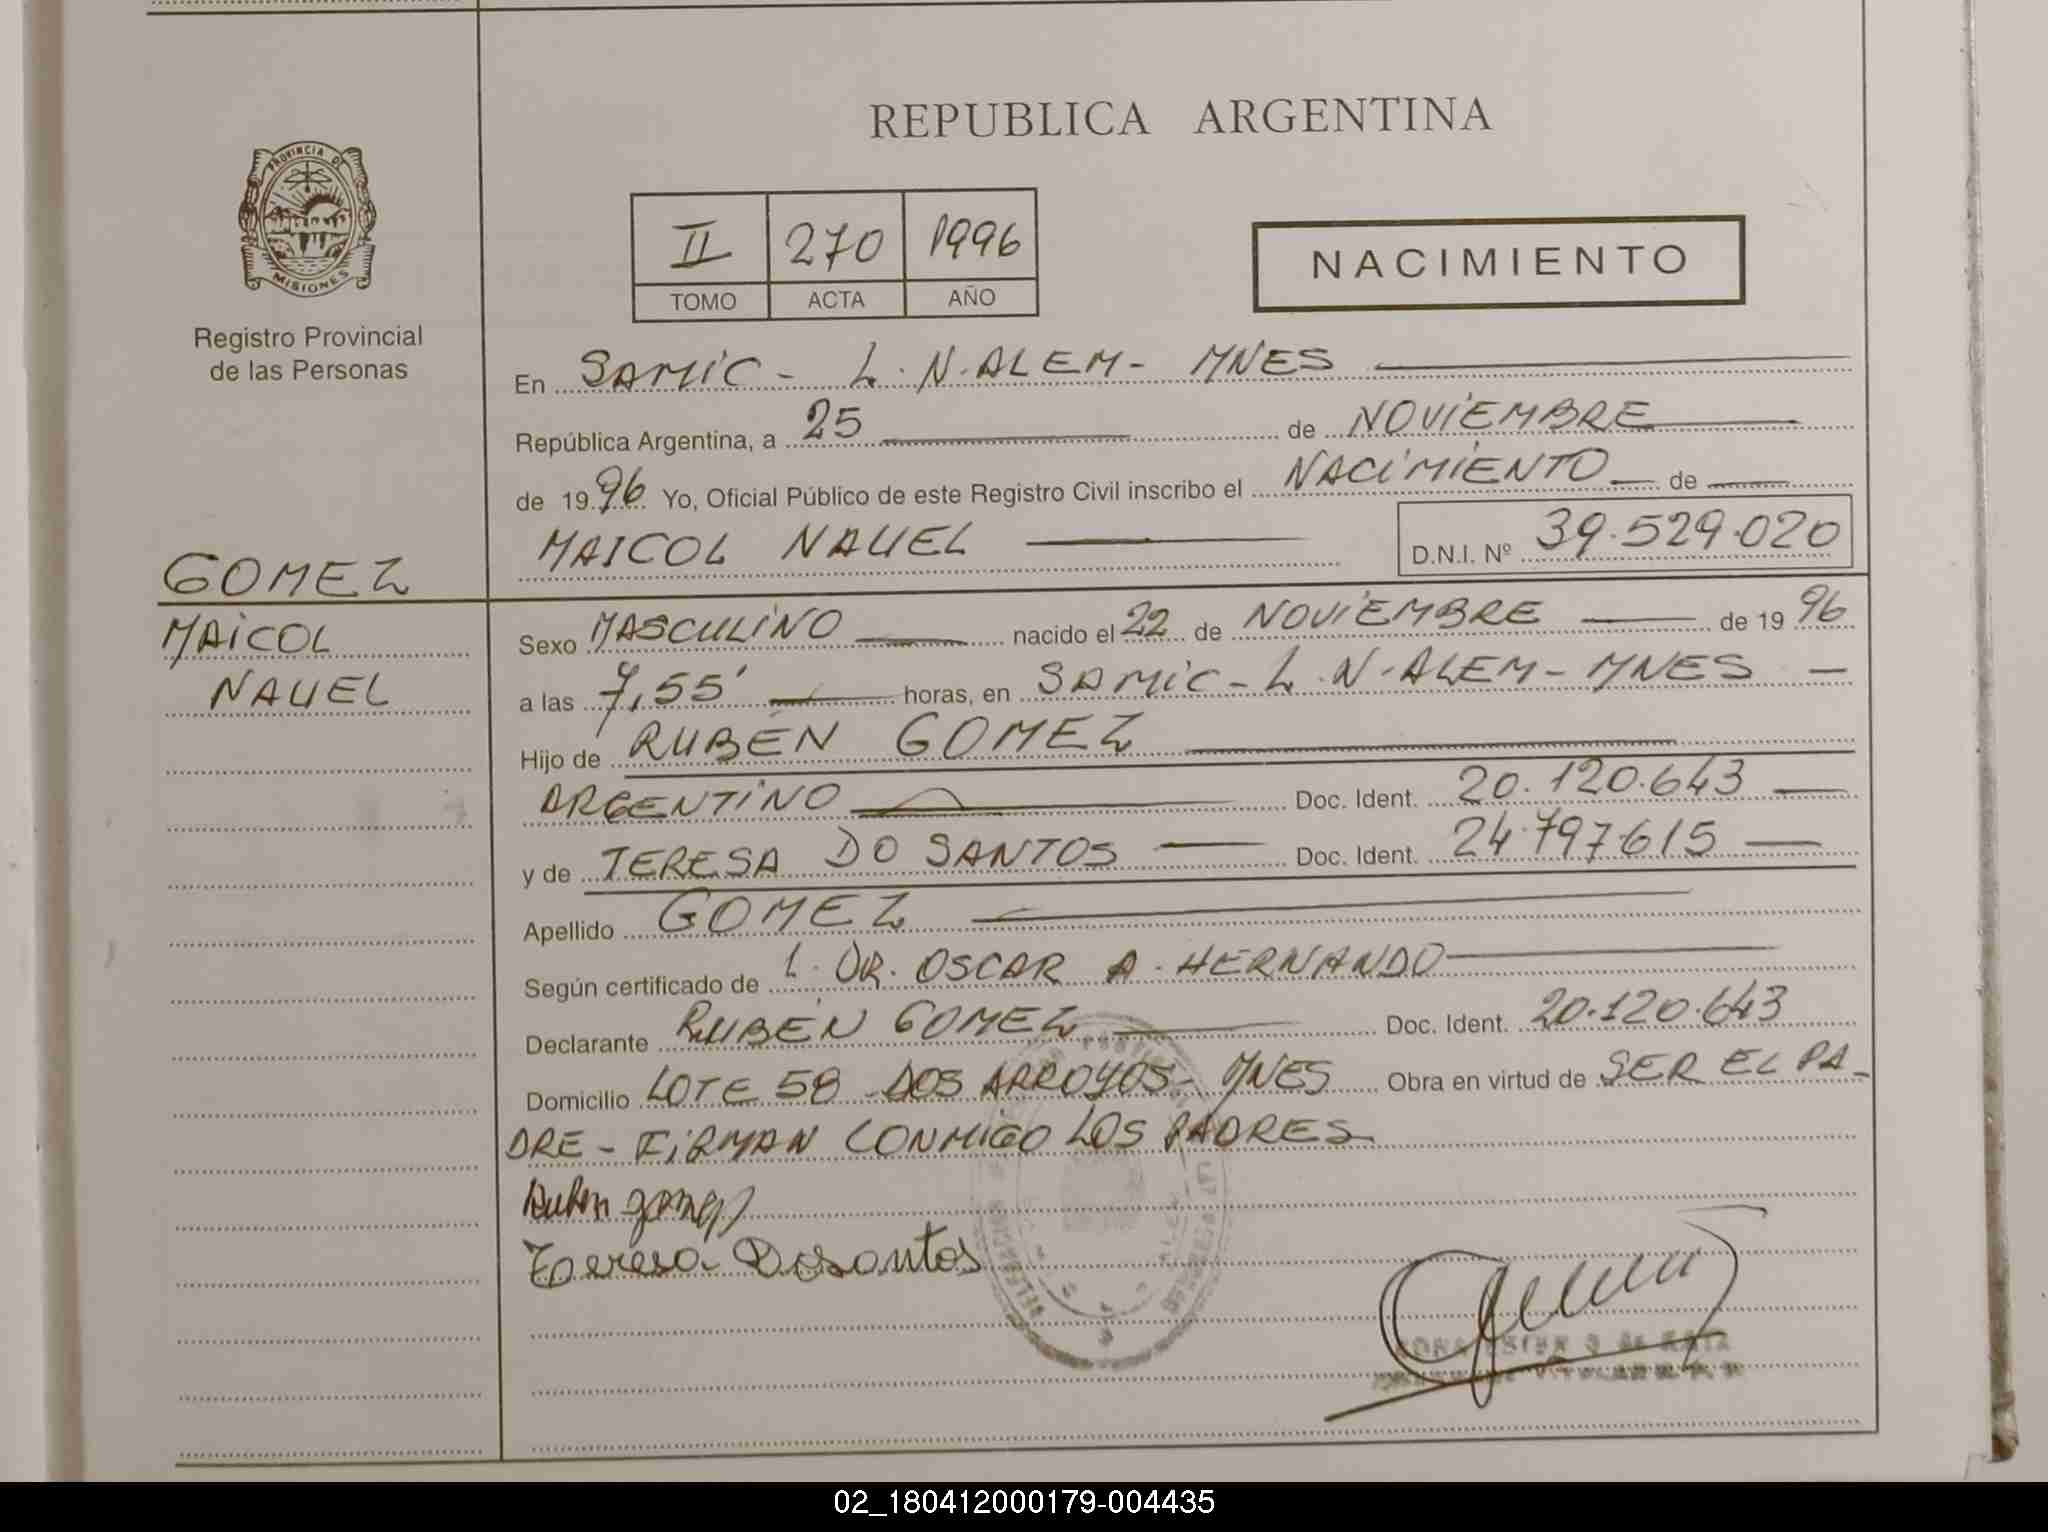 REPUBLICA ARGENTINA
PROVINCIA DE MISIONES
Registro Provincial
de las Personas
II 270 1996
TOMO ACTA AÑO
NACIMIENTO
En SAMIC - L.N. ALEM - MNES
República Argentina, a 25 de NOVIEMBRE
de 1996 Yo, Oficial Público de este Registro Civil inscribo el NACIMIENTO de
MAICOL NAUEL D.N.I. Nº 39.529.020
GOMEZ
MAICOL
NAUEL
Sexo MASCULINO nacido el 22 de NOVIEMBRE de 1996
a las 7,55' horas, en SAMIC - L.N. ALEM - MNES
Hijo de RUBEN GOMEZ
ARGENTINO Doc. Ident. 20.120.643
y de TERESA DO SANTOS Doc. Ident. 24.797.615
Apellido GOMEZ
Según certificado de L. DR. OSCAR A. HERNANDO
Declarante RUBEN GOMEZ Doc. Ident. 20.120.643
Domicilio LOTE 58 DOS ARROYOS - MNES Obra en virtud de SER EL PA-
DRE - FIRMAN CONMIGO LOS PADRES
Ruben gomez
Teresa Dosantos
02_180412000179-004435